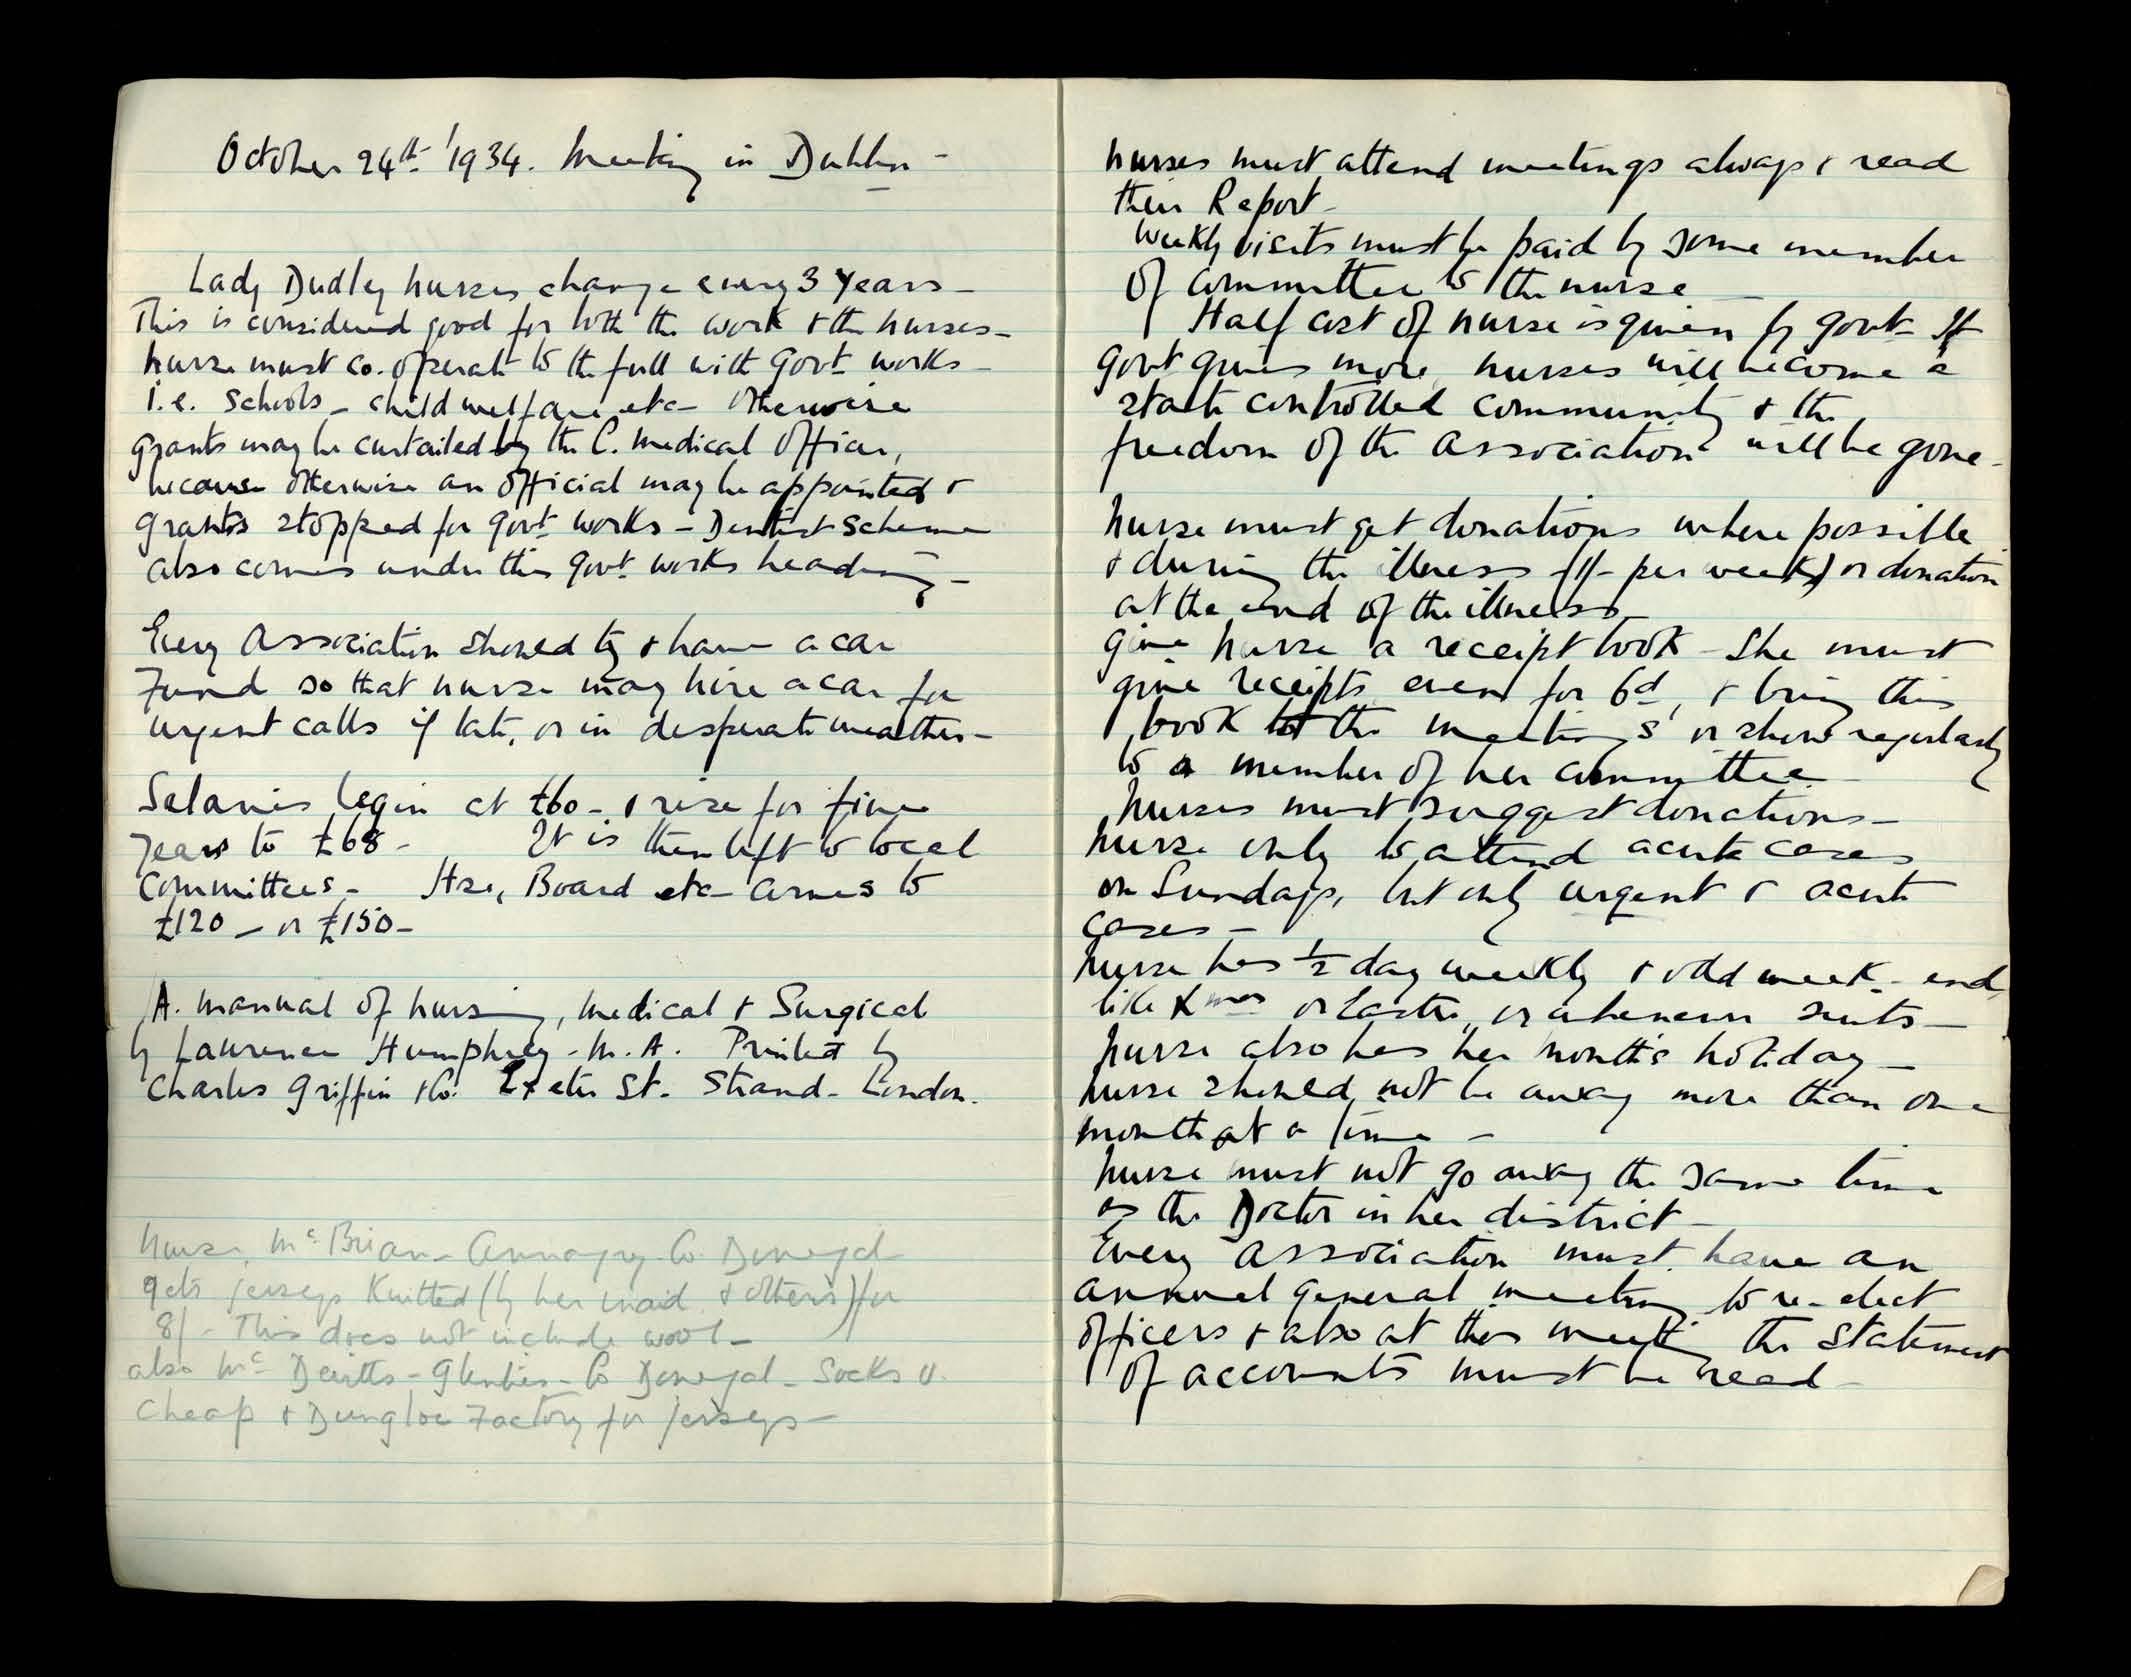 October 24th 1934. Meeting in Dublin -
Lady Dudley nurses change every 3 years -
This is considered good for both the work & the nurses -
nurse must co. operate to the full with Govt works -
i.e. Schools - child welfare, etc - Otherwise
grants may be curtailed by the C. Medical Officer,
because otherwise an official may be appointed &
grants stopped for govt works - Dentist scheme
also comes under this govt works heading -
Every Association should try & have a car
Fund so that nurse may hire a car for
urgent calls if late, or in desperate weather -
Salaries begin at £60 - & rise for five
years to £68 - It is then left to local
Committees - Hse, Board etc - comes to
£120 - or £150 -
A. manual of nursing, Medical & Surgical
by Laurence Humphrey - M.A. Printed by
Charles Griffin & Co. Exeter St. Strand - London.
Nurse, McBrian - Annagry Co Donegal
gets jerseys Knitted (by her maid & others) for
8/- This does not include wool -
also Mc Devitts - Glenties - Co Donegal - Socks v.
cheap & Dungloe Factory for jerseys -
nurses must attend meetings always & read
their Report -
Weekly visits must be paid by some member
of committee to the nurse -
Half cost of nurse is given by govt - If
Govt gives more, nurses will become a
state controlled community & the
freedom of the Association will be gone -
Nurse must get donations where possible
& during the illness (1/- per week) or donation
at the end of the illness -
give nurse a receipt book - She must
give receipts even for 6d, & bring this
book to the meetings or show regularly
to a member of her committee -
Nurses must suggest donations -
nurse only to attend acute cases
on Sundays, but only urgent & acute
cases -
nurse has ½ day weekly & odd week - end,
like Xmas or Easter, or whenever suits -
nurse also has her month's holiday -
nurse should not be away more than one
month at a time -
nurse must not go away the same time
as the Doctor in her district -
Every Association must have an
annual general meeting to re-elect
officers & also at this meeting the statement
of accounts must be read -